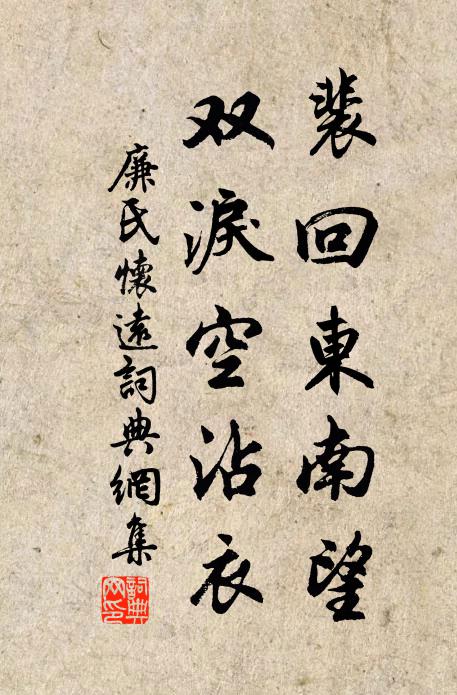 裴回東南望
双淚空沾衣
廉氏懷遠詞典網集
詞典網印